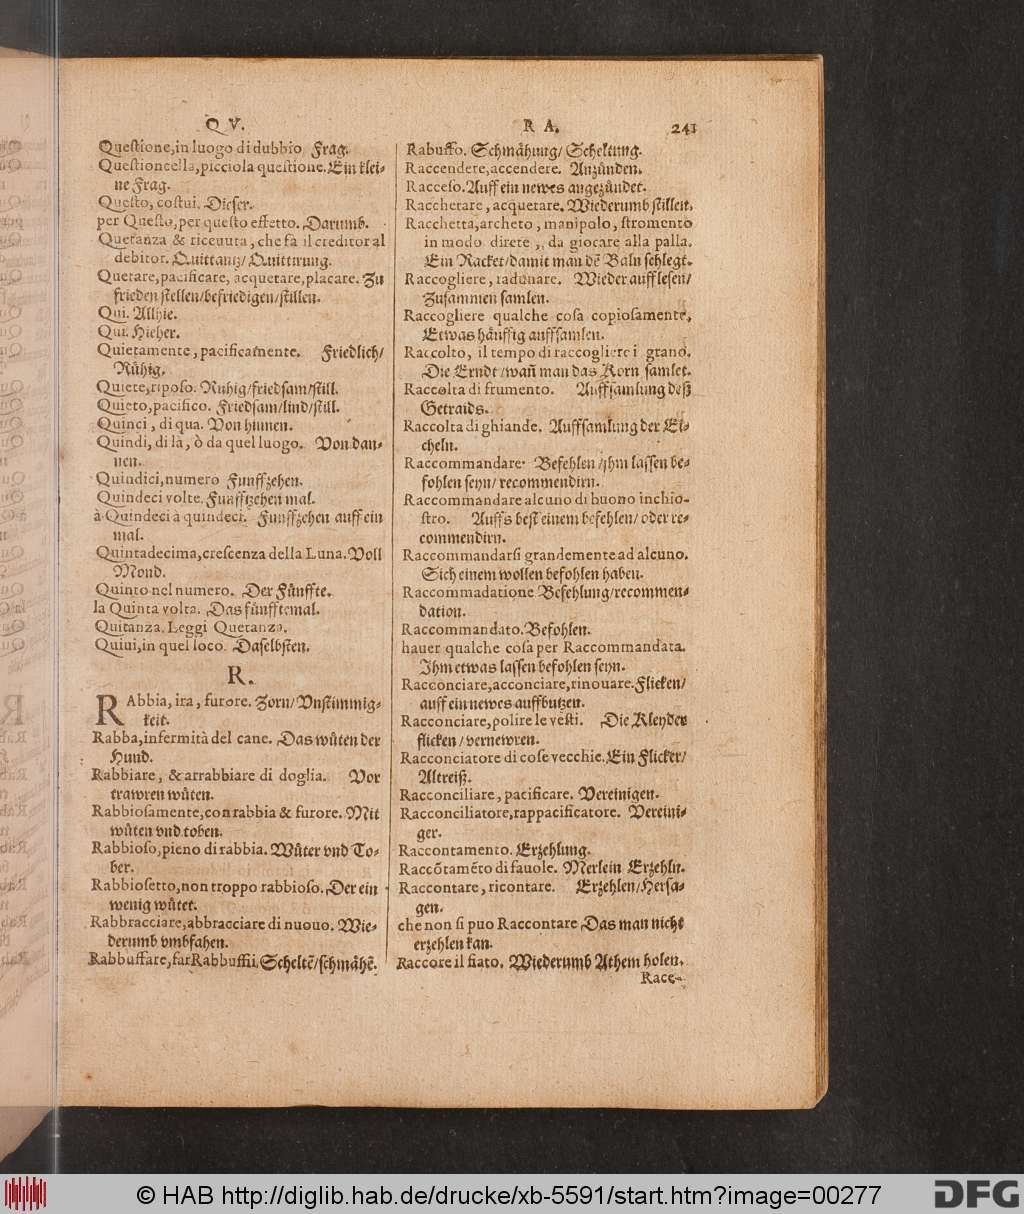 QV.
Questione, in luogo di dubbio Frag.
Questioncella, picciola questione. Ein klei-
ne Frag.
Questo, costui. Dieser.
per Questo, per questo effetto. Darumb.
Quetanza & riceuuta, che fà il creditor al
debitor. Quittantz/Quittirung.
Quetare, pacificare, acquetare, placare. Zu
frieden stellen/befriedigen/stillen.
Qui. Allhie.
Qui. Hieher.
Quietamente, pacificamente. Friedlich/
Rühig.
Quiete, riposo. Ruhig/friedsam/still.
Quieto, pacifico. Friedsam/lind/still.
Quinci, di qua. Von hinnen.
Quindi, di là, ò da quel luogo. Von dan-
nen.
Quindici, numero Funffzehen.
Quindeci volte. Funfftzehen mal.
à Quindeci à quindeci. Funffzehen auff ein
mal.
Quintadecima, crescenza della Luna. Voll
Mond.
Quinto nel numero. Der Fünffte.
la Quinta volta. Das fünfftemal.
Quitanza. Leggi Quetanza.
Quiui, in quel loco. Daselbsten.
R.
RAbbia, ira, furore. Zorn/Vnstimmig-
keit.
Rabba, infermità del cane. Das wüten der
Hund.
Rabbiare, & arrabbiare di doglia. Vor
trawren wüten.
Rabbiosamente, con rabbia & furore. Mit
wüten vnd toben.
Rabbioso, pieno di rabbia. Wüter vnd To-
ber.
Rabbiosetto, non troppo rabbioso. Der ein
wenig wütet.
Rabbracciare, abbracciare di nuouo. Wie-
derumb vmbfahen.
Rabbuffare, far Rabbuffii. Scheltē/schmähē.
RA. 241
Rabuffo. Schmähung/Scheltung.
Raccendere, accendere. Anzünden.
Racceso. Auff ein newes angezündet.
Racchetare, acquetare. Wiederumb stillen.
Racchetta, archeto, manipolo, stromento
in modo direte, da giocare alla palla.
Ein Racket/damit man dē Baln schlegt.
Raccogliere, radunare. Wieder auff lesen/
Zusammen samlen.
Raccogliere qualche cosa copiosamente.
Etwas häuffig auffsamlen.
Raccolto, il tempo di raccogliere i grano.
Die Erndt/wañ man das Korn samlet.
Raccolta di frumento. Auffsamlung deß
Getraids.
Raccolta di ghiande. Auffsamlung der Ei-
cheln.
Raccommandare. Befehlen/jhm lassen be-
fohlen seyn/recommendirn.
Raccommandare alcuno di buono inchio-
stro. Auffs best einem befehlen/oder re-
commendirn.
Raccommandarsi grandemente ad alcuno.
Sich einem wollen befohlen haben.
Raccommadatione Befehlung/recommen-
dation.
Raccommandato. Befohlen.
hauer qualche cosa per Raccommandata.
Ihm etwas lassen befohlen seyn.
Racconciare, acconciare, rinouare. Flicken/
auff ein newes auffbutzen.
Racconciare, polire le vesti. Die Kleyder
flicken/vernewren.
Racconciatore di cose vecchie. Ein Flicker/
Altreiß.
Racconciliare, pacificare. Vereinigen.
Racconciliatore, rappacificatore. Vereini-
ger.
Raccontamento. Erzehlung.
Raccōtamēto di fauole. Merlein Erzehln.
Raccontare, ricontare. Erzehlen/Hersa-
gen.
che non si puo Raccontare Das man nicht
erzehlen kan.
Raccore il fiato. Wiederumb Athem holen.
Race-
© HAB http://diglib.hab.de/drucke/xb-5591/start.htm?image=00277
DFG